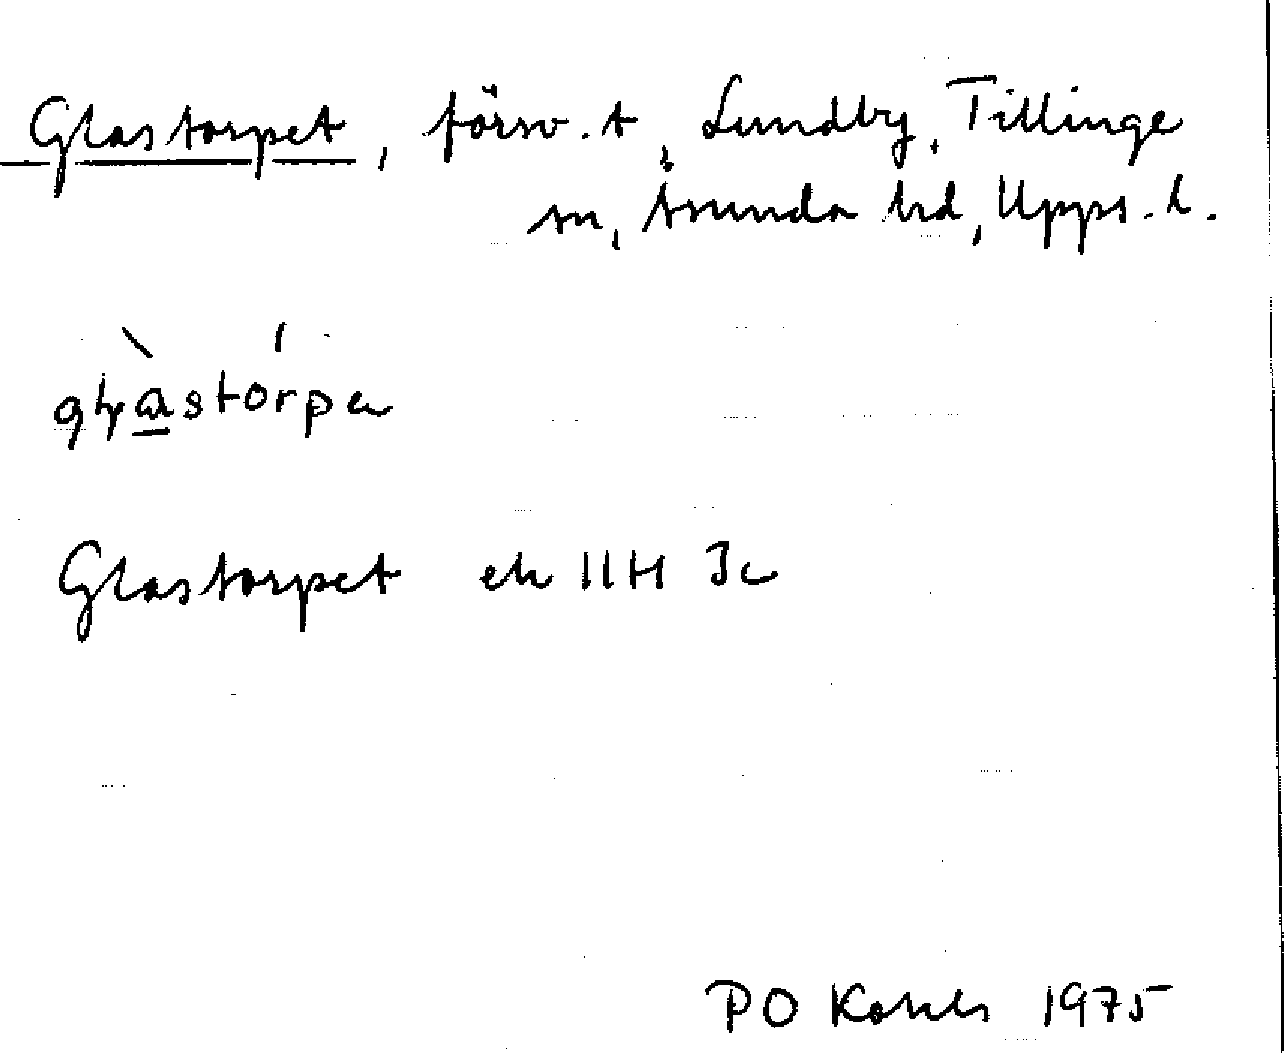 Glastorpet, försv. t, Lundby, Tillinge
sn, Åsunda hd, Upps. l.
glàstórpa
Glastorpet ek 11H 3c
PO 1975